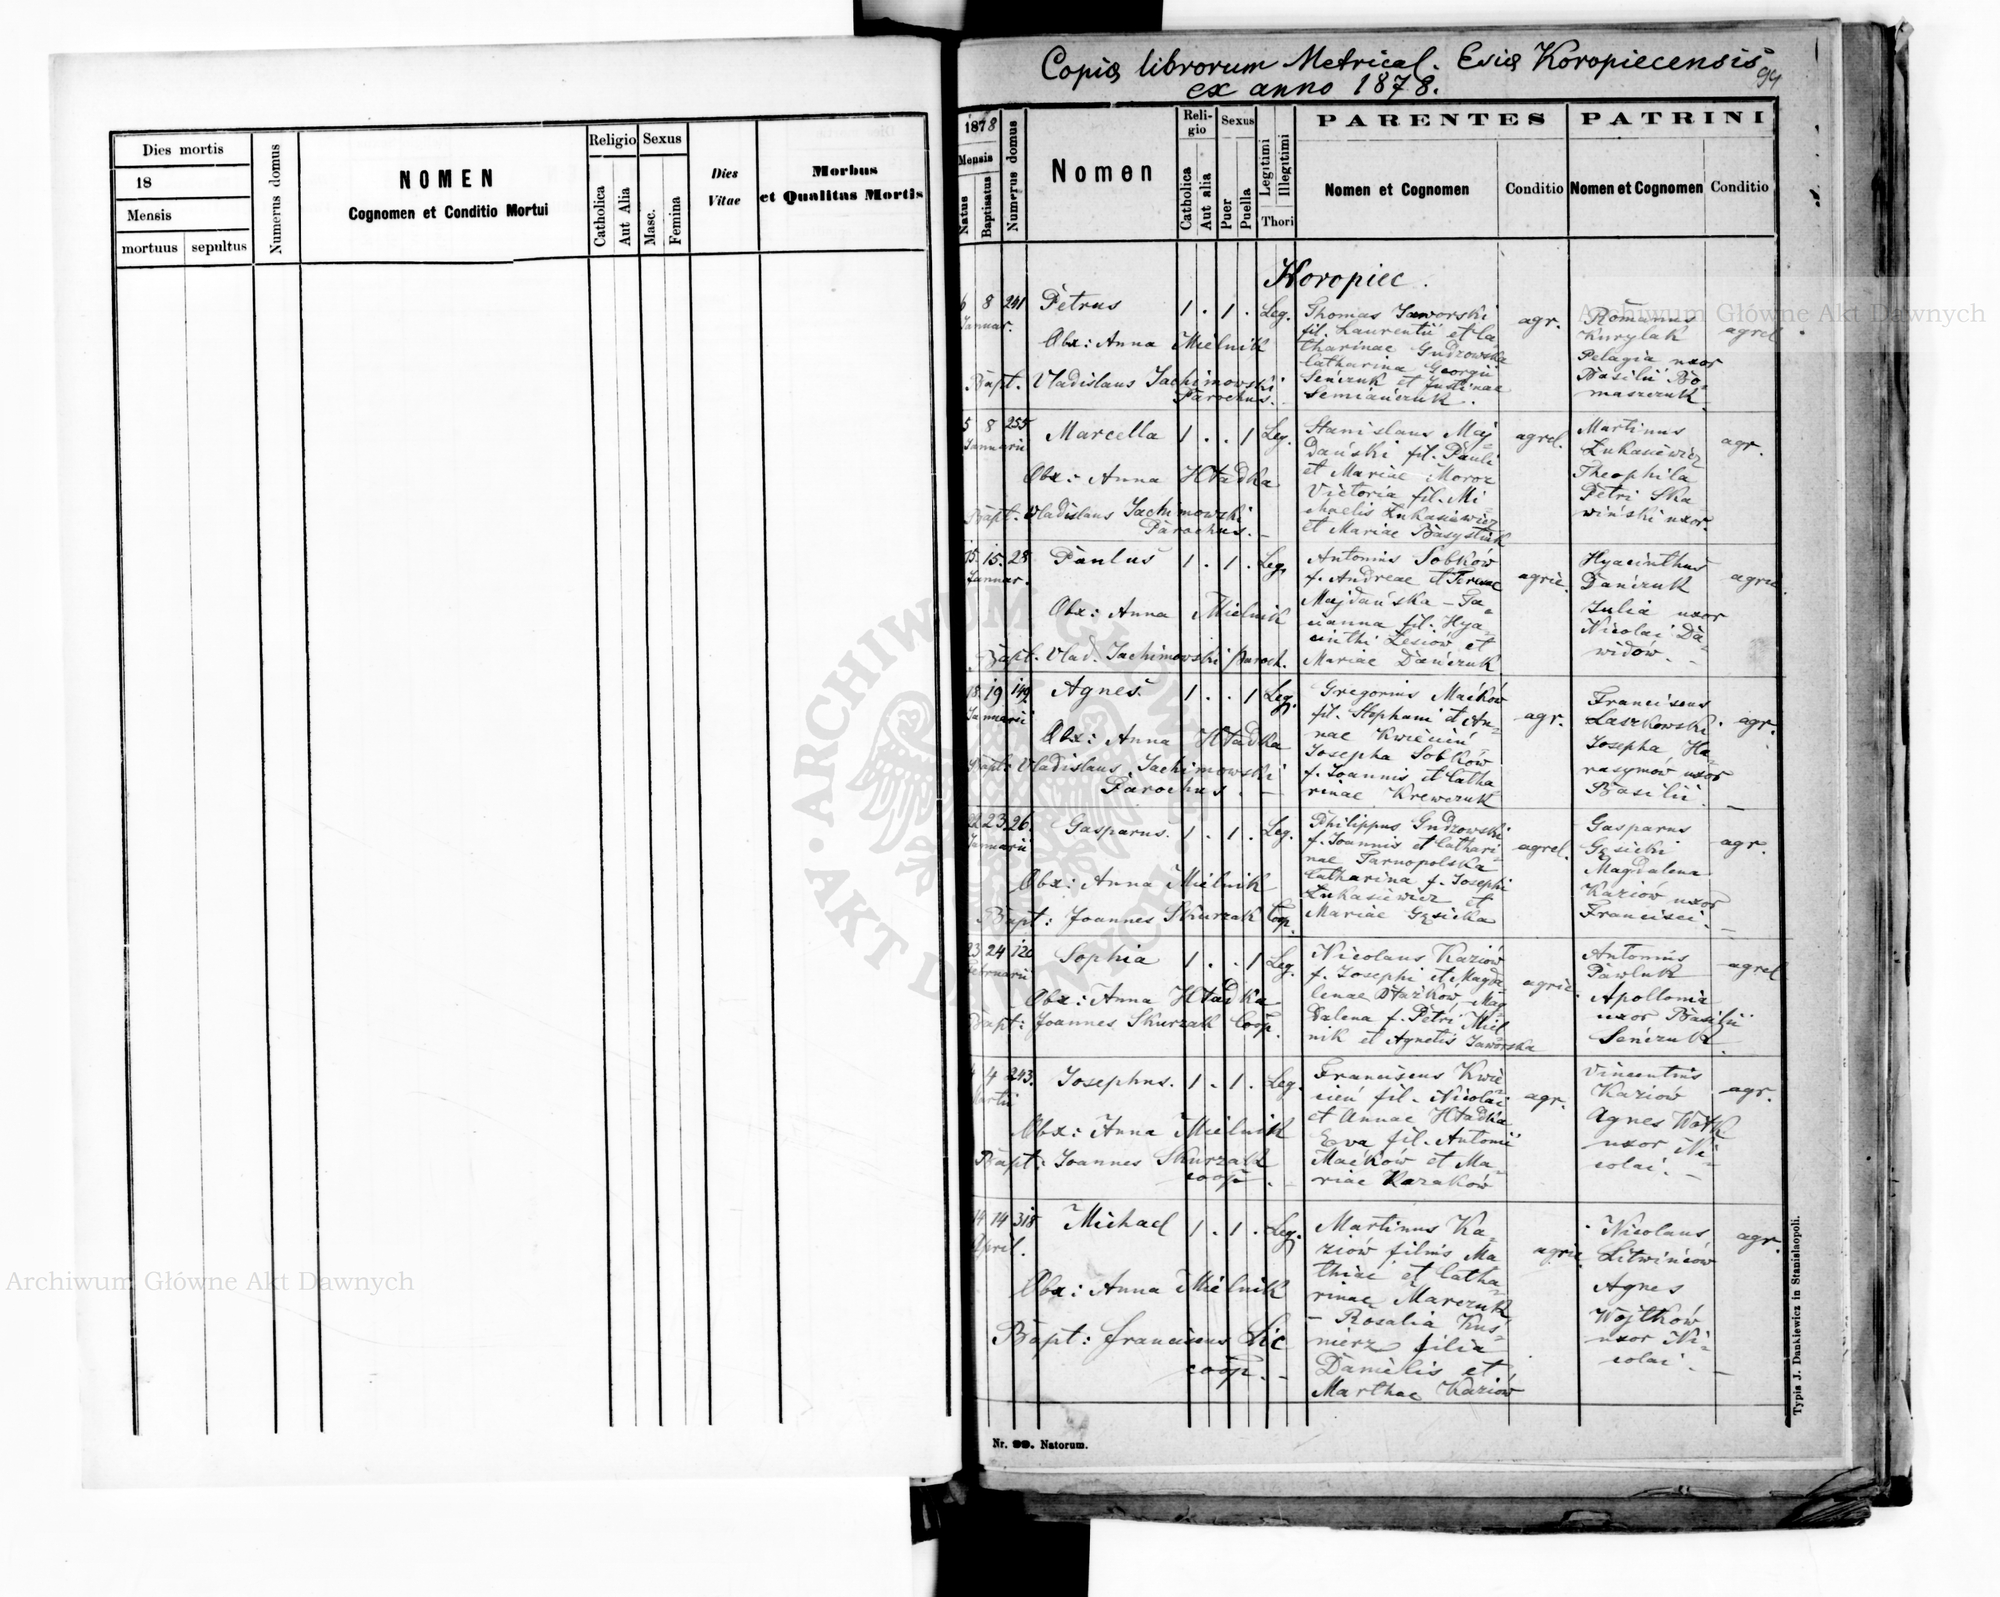 Dies mortis
18
Mensis
mortuus sepultus
Numerus domus
NOMEN
Cognomen et Conditio Mortui
Religio
Catholica
Aut Alia
Sexus
Masc.
Femina
Dies
Vitae
Morbus
et Qualitas Mortis
Copia librorum Metrical. Esiæ Koropiecensis
ex anno 1878.
94
1878
Mensis
Natus
Baptisatus
Numerus domus
Nomen
Reli-
gio
Catholica
Aut alia
Sexus
Puer
Puella
Legitimi
Illegitimi
Thori
PARENTES
Nomen et Cognomen
Conditio
PATRINI
Nomen et Cognomen
Conditio
Koropiec.
6 8 241 Petrus 1 . 1 . Leg.
Januar.
Obx: Anna Mielnik
Bapt. Vladislaus Jachimowski
Parochus.
Thomas Jaworski
fil. Laurentii et Ca-
tharinae Gudzowska
Catharina Georgii
Senczuk et Justinae
Semiańczuk.
agr.
Romanus
Kurylak
Pelagia uxor
Basilii Ro-
maszczuk
agrel.
5 8 255 Marcella 1 . . 1 Leg.
Januarii
Obx: Anna Hładka
Bapt. Vladislaus Jachimowski
Parochus.
Stanislaus Maj-
dański fil. Pauli
et Mariae Moroz
Victoria fil. Mi
chaelis Łukasiewicz
et Mariae Basystiuk
agrel.
Martinus
Łukasiewicz
Theophila
Petri Ska
wiński uxor.
agr.
15. 15. 28 Paulus 1 . 1 . Leg.
Januar.
Obx: Anna Mielnik
Bapt. Vlad. Jachimowski paroch.
Antonius Sobków
f. Andreae et Teresae
Majdańska - Ta-
cianna fil. Hya-
cinthi Lesiow et
Mariae Dańczuk
agric.
Hyacinthus
Danczuk
Julia uxor
Nicolai Da-
widow.
agric.
18. 19 149 Agnes. 1 . . 1 Leg.
Januarii
Obx: Anna Hładka
Bapt: Vladislaus Jachimowski
Parochus.
Gregorius Maćków
fil. Stephani et An-
nae Kwiecień
Josepha Sobków
f. Joannis et Catha
rinae Krewczuk
agr.
Franciscus
Laszkowski
Josepha Ha-
rasymów uxor
Basilii.
agr.
22 23 26. Gasparus. 1 . 1 . Leg.
Januarii
Obx: Anna Mielnik
Bapt: Joannes Skurzak Coop.
Philippus Gudzowski
f. Joannis et Cathari-
nae Tarnopolska
Catharina f. Josephi
Łukasiewicz et
Mariae Gęsicka
agrel.
Gasparus
Gęsicki
Magdalena
Kaziów uxor
Francisci.
agr.
23 24 120 Sophia 1 . . 1 Leg.
Februarii
Obx: Anna Hładka
Bapt: Joannes Skurzak Coop.
Nicolaus Kaziów
f. Josephi et Magda-
lenae Dtażków, Mag-
dalena f. Petri Miel-
nik et Agnetis Jaworska
agric.
Antonius
Pawluk
Apollonia
uxor Basilii
Senczuk
agrel
4 4 243. Josephus. 1 . 1 . Leg.
Martii
Obx: Anna Mielnik
Bapt: Joannes Skurzak
coop.
Franciscus Kwie-
cień fil. Nicolai
et Annae Hładka
Eva fil. Antonii
Maćków et Ma-
riae Kazaków
agr.
Vincentius
Kaziow
Agnes
uxor Ni-
colai.
agr.
14 14 318 Michael 1 . 1 . Leg.
April.
Obx: Anna Mielnik
Bapt: Franciscus Lic
coop.
Martinus Ka-
ziów filius Ma
thiae et Catha-
rinae Marczuk
- Rosalia Kuś-
nierz filia
Danielis et
Marthae Kaziów
agric.
Nicolaus
Litwińców
Agnes
Wojtków
uxor Ni-
colai.
agr.
Nr. 99. Natorum.
Typis J. Dankiewicz in Stanislaopoli.
Archiwum Główne Akt Dawnych
Archiwum Główne Akt Dawnych
ARCHIWUM GŁÓWNE AKT DAWNYCH